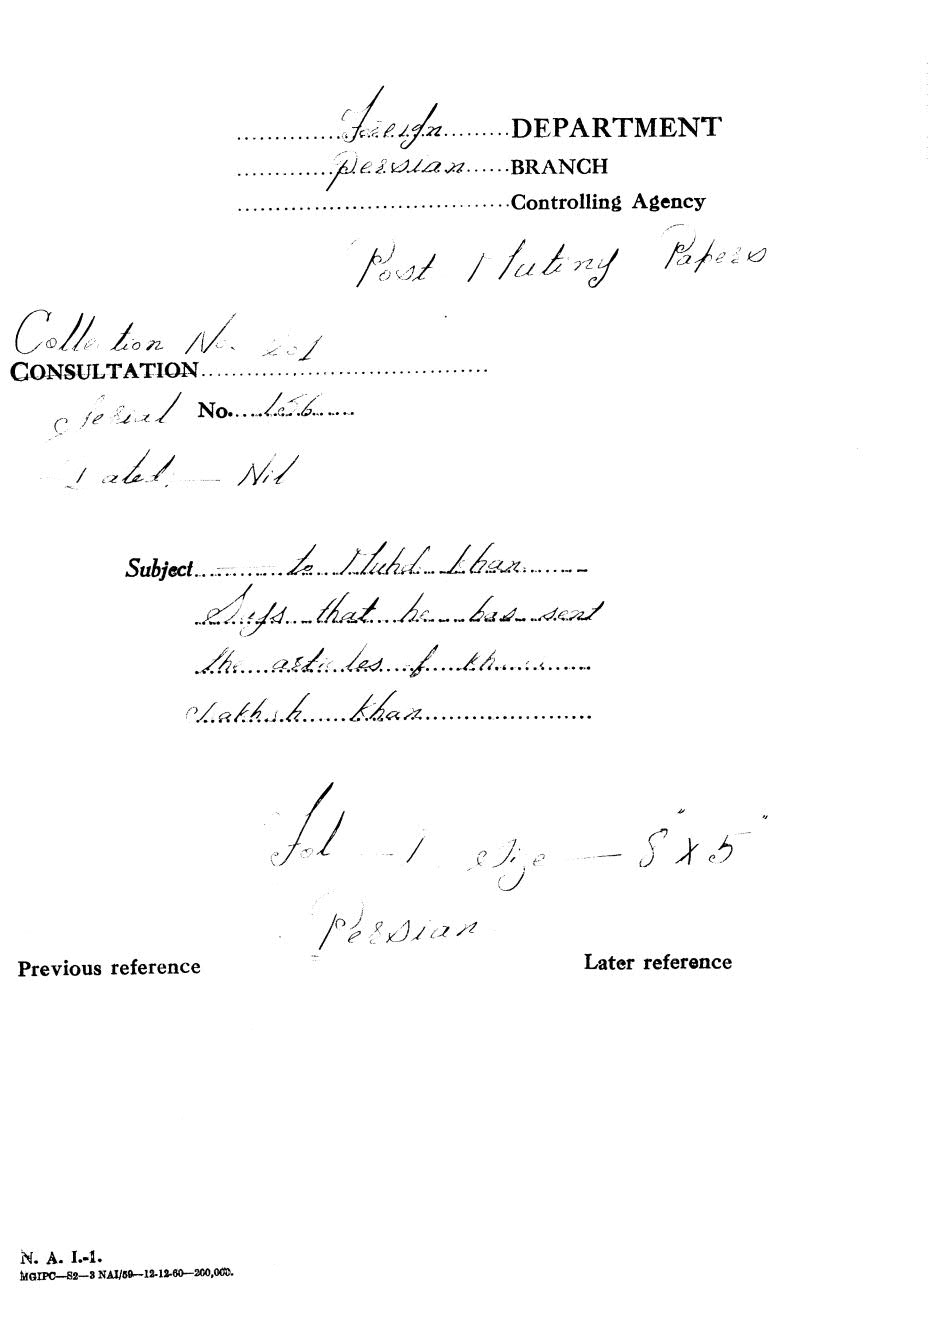 Foreign DEPARTMENT
Persian BRANCH
Controlling Agency
Post Mutiny Papers
Collection No. 201
CONSULTATION
Serial No. 156
Dated — Nil
Subject — to Muhd Khan
Says that he has sent
the articles of
Bakhsh Khan
Fol — 1 Size — 8" X 5"
Persian
Previous reference
Later reference
N. A. I.-1.
MGIPC—S2—3 NAI/59—12-12-60—200,000.